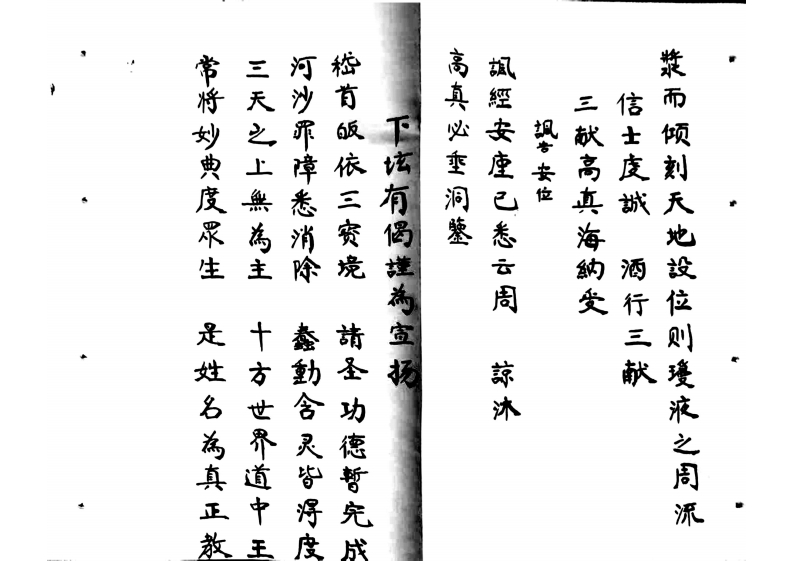 漿而傾刻天地設位则瓊液之周流
信士虔誠　酒行三献
三献高真海納受
諷告安位
諷經安座已悉云周　諒沐
高真必垂洞鑒
下坛有偈謹為宣扬
嵇首皈依三宝境　請圣功德暫完成
河沙罪障悉消除　蠢動含灵皆得度
三天之上無為主　十方世界道中王
常將妙典度眾生　是姓名為真正教